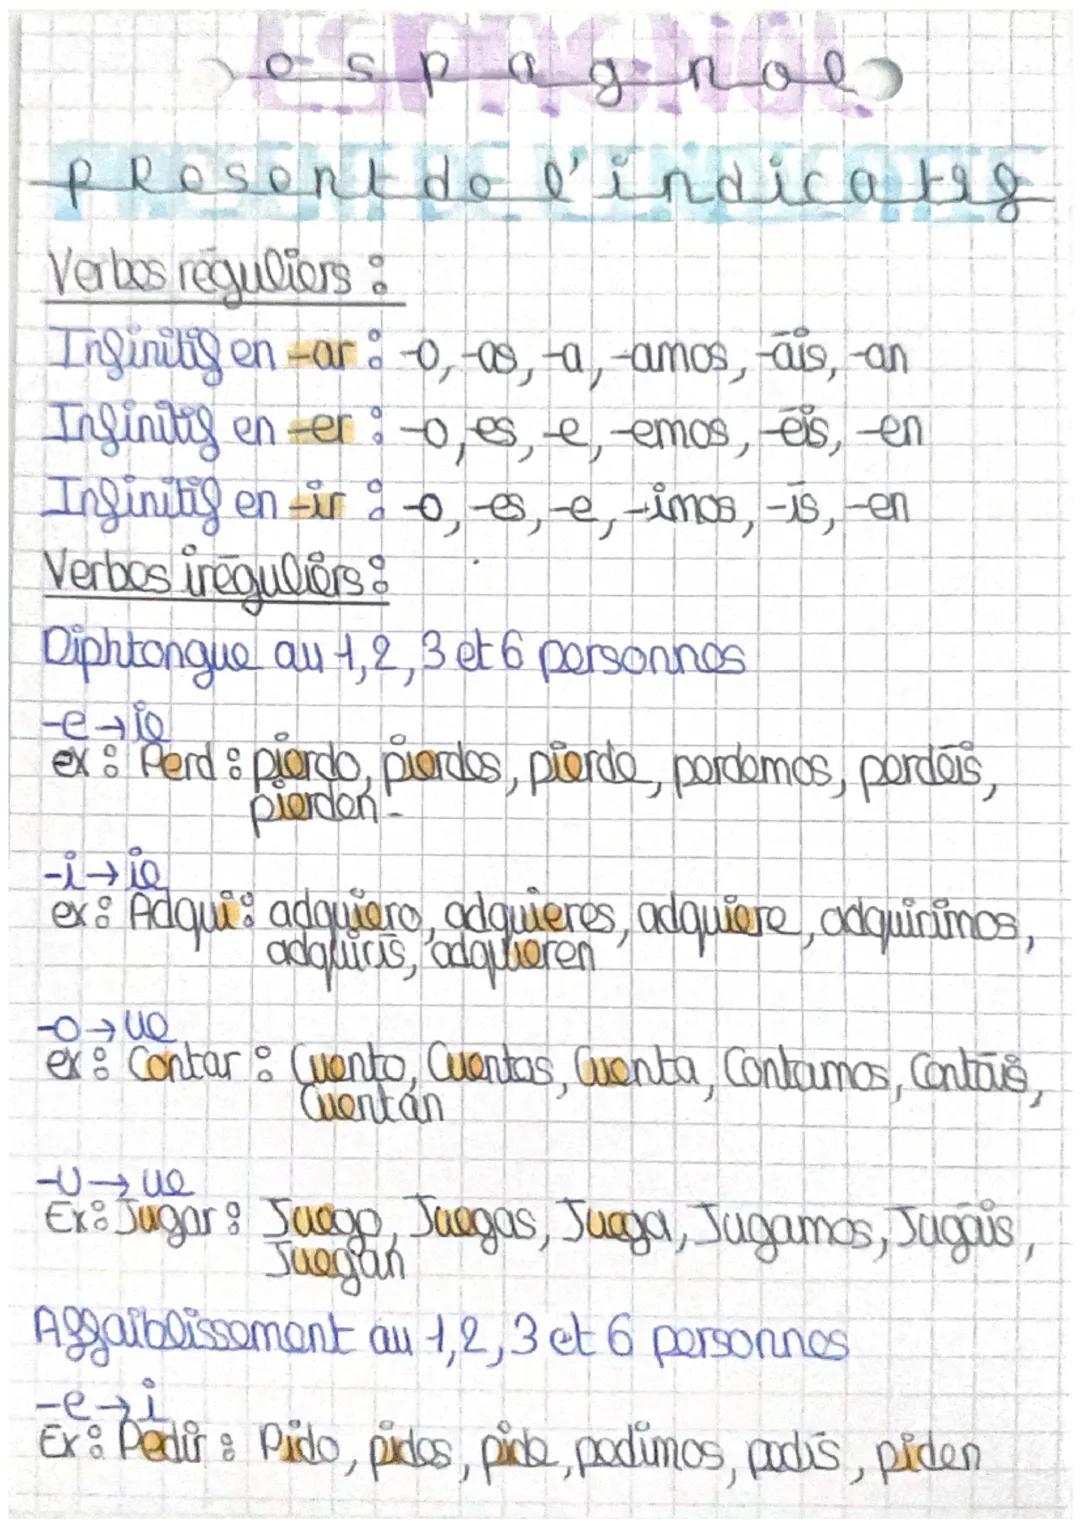 espagnol
present de l'indicatif
Verbes réguliers :
Infinitif en -ar : -o, -as, -a, -amos, -āis, -an
Infinitif en -er : -o, es, -e, -emos, -ēis, -en
Infinitif en -ir : -o, -es, -e, -imos, -īs, -en
Verbes iréguliers :
Diphtongue au 1, 2, 3 et 6 personnes
-e → ie
ex : Perd : pierdo, pierdes, pierde, perdemos, perdēis,
pierden -
-i → ie
ex : Adqui : adquiero, adquieres, adquiere, adquirimos,
adquirīs, adquieren
-o → ue
ex : Contar : Cuento, Cuentas, Cuenta, Contamos, Contāis,
Cuentan
-U → ue
Ex : Jugar : Juego, Juegas, Juega, Jugamos, Jugāis,
Juegan
Affaiblissement au 1, 2, 3 et 6 personnes
-e → i
Ex : Pedir : Pido, pides, pide, pedimos, pedīs, piden